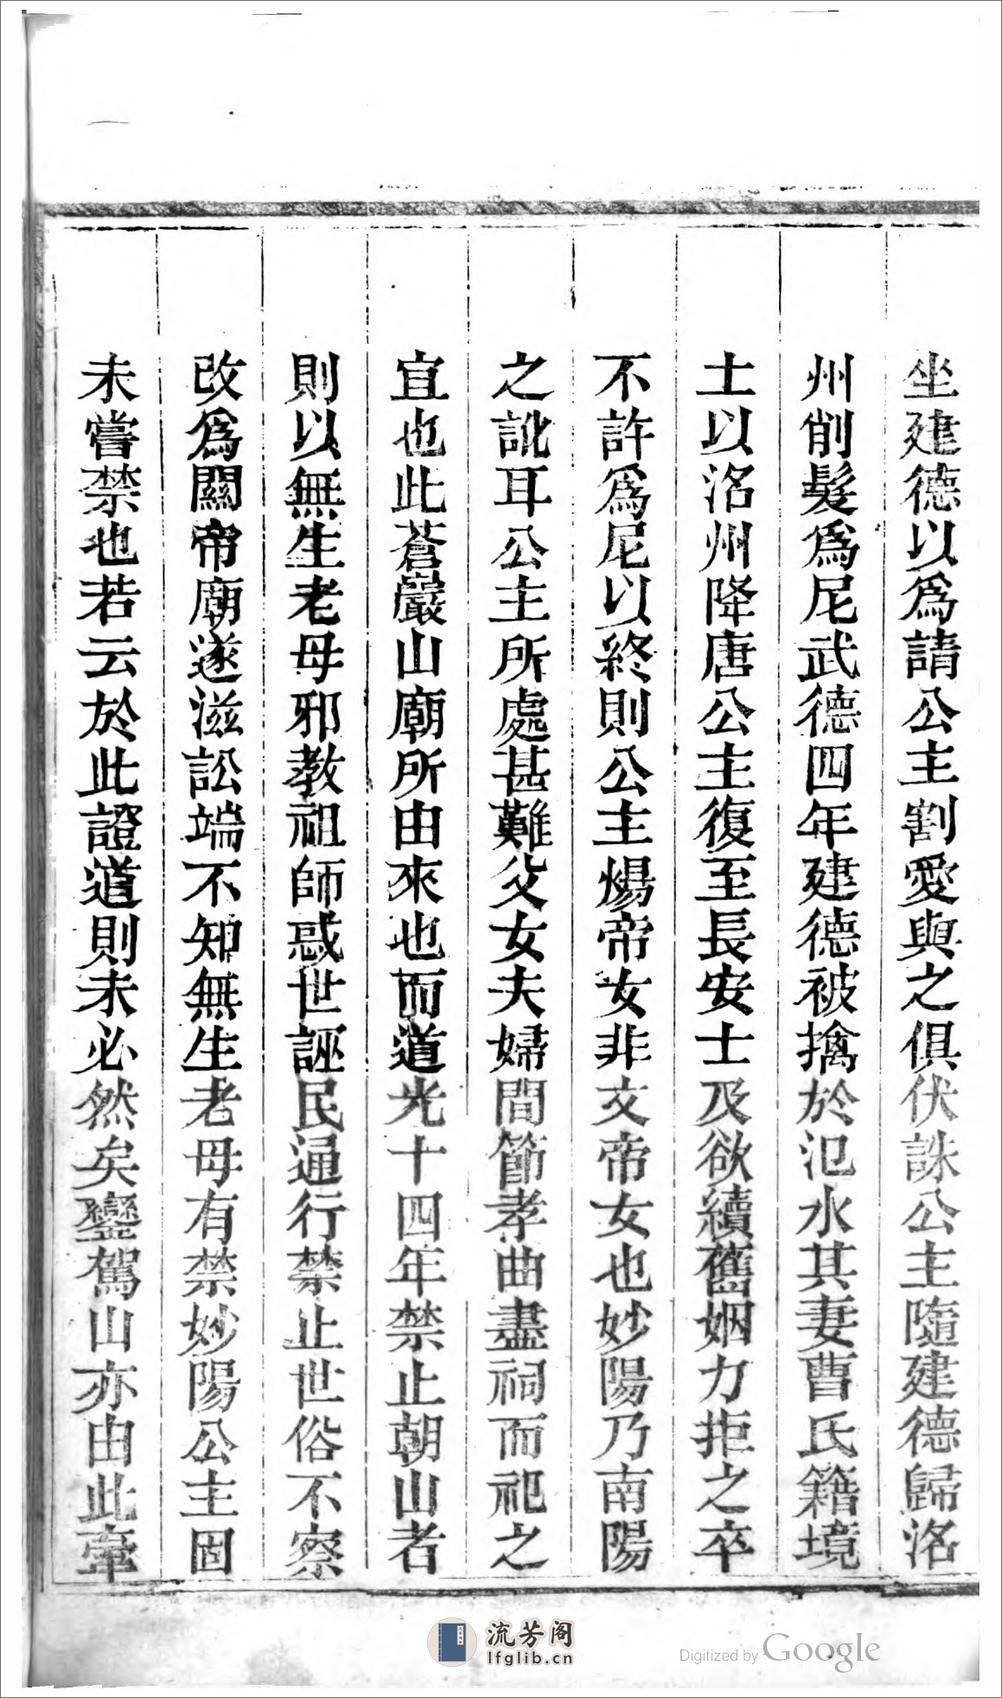 坐建德以爲請公主割愛與之俱伏誅公主隨建德歸洛
州削髮爲尼武德四年建德被擒於氾水其妻曹氏籍境
土以洛州降唐公主復至長安士及欲續舊姻力拒之卒
不許爲尼以終則公主煬帝女非文帝女也妙陽乃南陽
之訛耳公主所處甚難父女夫婦間節孝曲盡祠而祀之
宜也此蒼巖山廟所由來也而道光十四年禁止朝山者
則以無生老母邪教祖師惑世誣民通行禁止世俗不察
改爲關帝廟遂滋訟端不知無生老母有禁妙陽公主固
未嘗禁也若云於此證道則未必然矣鑾駕山亦由此牽
流芳阁
lfglib.cn
Digitized by Google